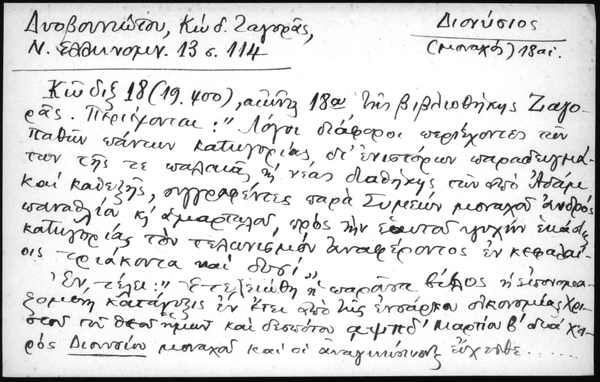 Δυοβουνιώτου, Κώδ. Ζαγορᾶς,
Ν. Ἑλληνομν. 13 σ. 114
Διονύσιος
(μοναχός) 18 αἰ.
Κῶδιξ 18 (19. 400), αἰῶνος 18ου τῆς βιβλιοθήκης Ζαγο-
ρᾶς. Περιέχονται: "Λόγοι διάφοροι περιέχοντες τῶν
παθῶν πάντων κατηγορίας, δι' ἐνιστόρων παραδειγμά-
των τῆς τε παλαιᾶς κ νέας διαθήκης τῶν ἀπὸ Ἀδάμ
καὶ καθεξῆς, συγγραφέντες παρὰ Συμεὼν μοναχοῦ ἀνδρὸς
παναθλίου κ ἁμαρτωλοῦ, πρὸς τὴν ἑαυτοῦ ψυχὴν ἑκάστης
κατηγορίας τὸν ταλανισμὸν ἀναφέροντος ἐν κεφαλαί-
οις τριάκοντα καὶ δυσί".
Ἐν τέλει: "Ἐτελειώθη ἡ παροῦσα βίβλος ἡ ἐπονομα-
ζομένη κατάνυξις ἐν ἔτει ἀπὸ τῆς ἐνσάρκου οἰκονομίας Χρι-
στοῦ τοῦ Θεοῦ ἡμῶν καὶ δεσπότου αψπδ' Μαρτίου β' διὰ χει-
ρὸς Διονυσίου μοναχοῦ καὶ οἱ ἀναγινώσκοντες εὔχεσθε ......